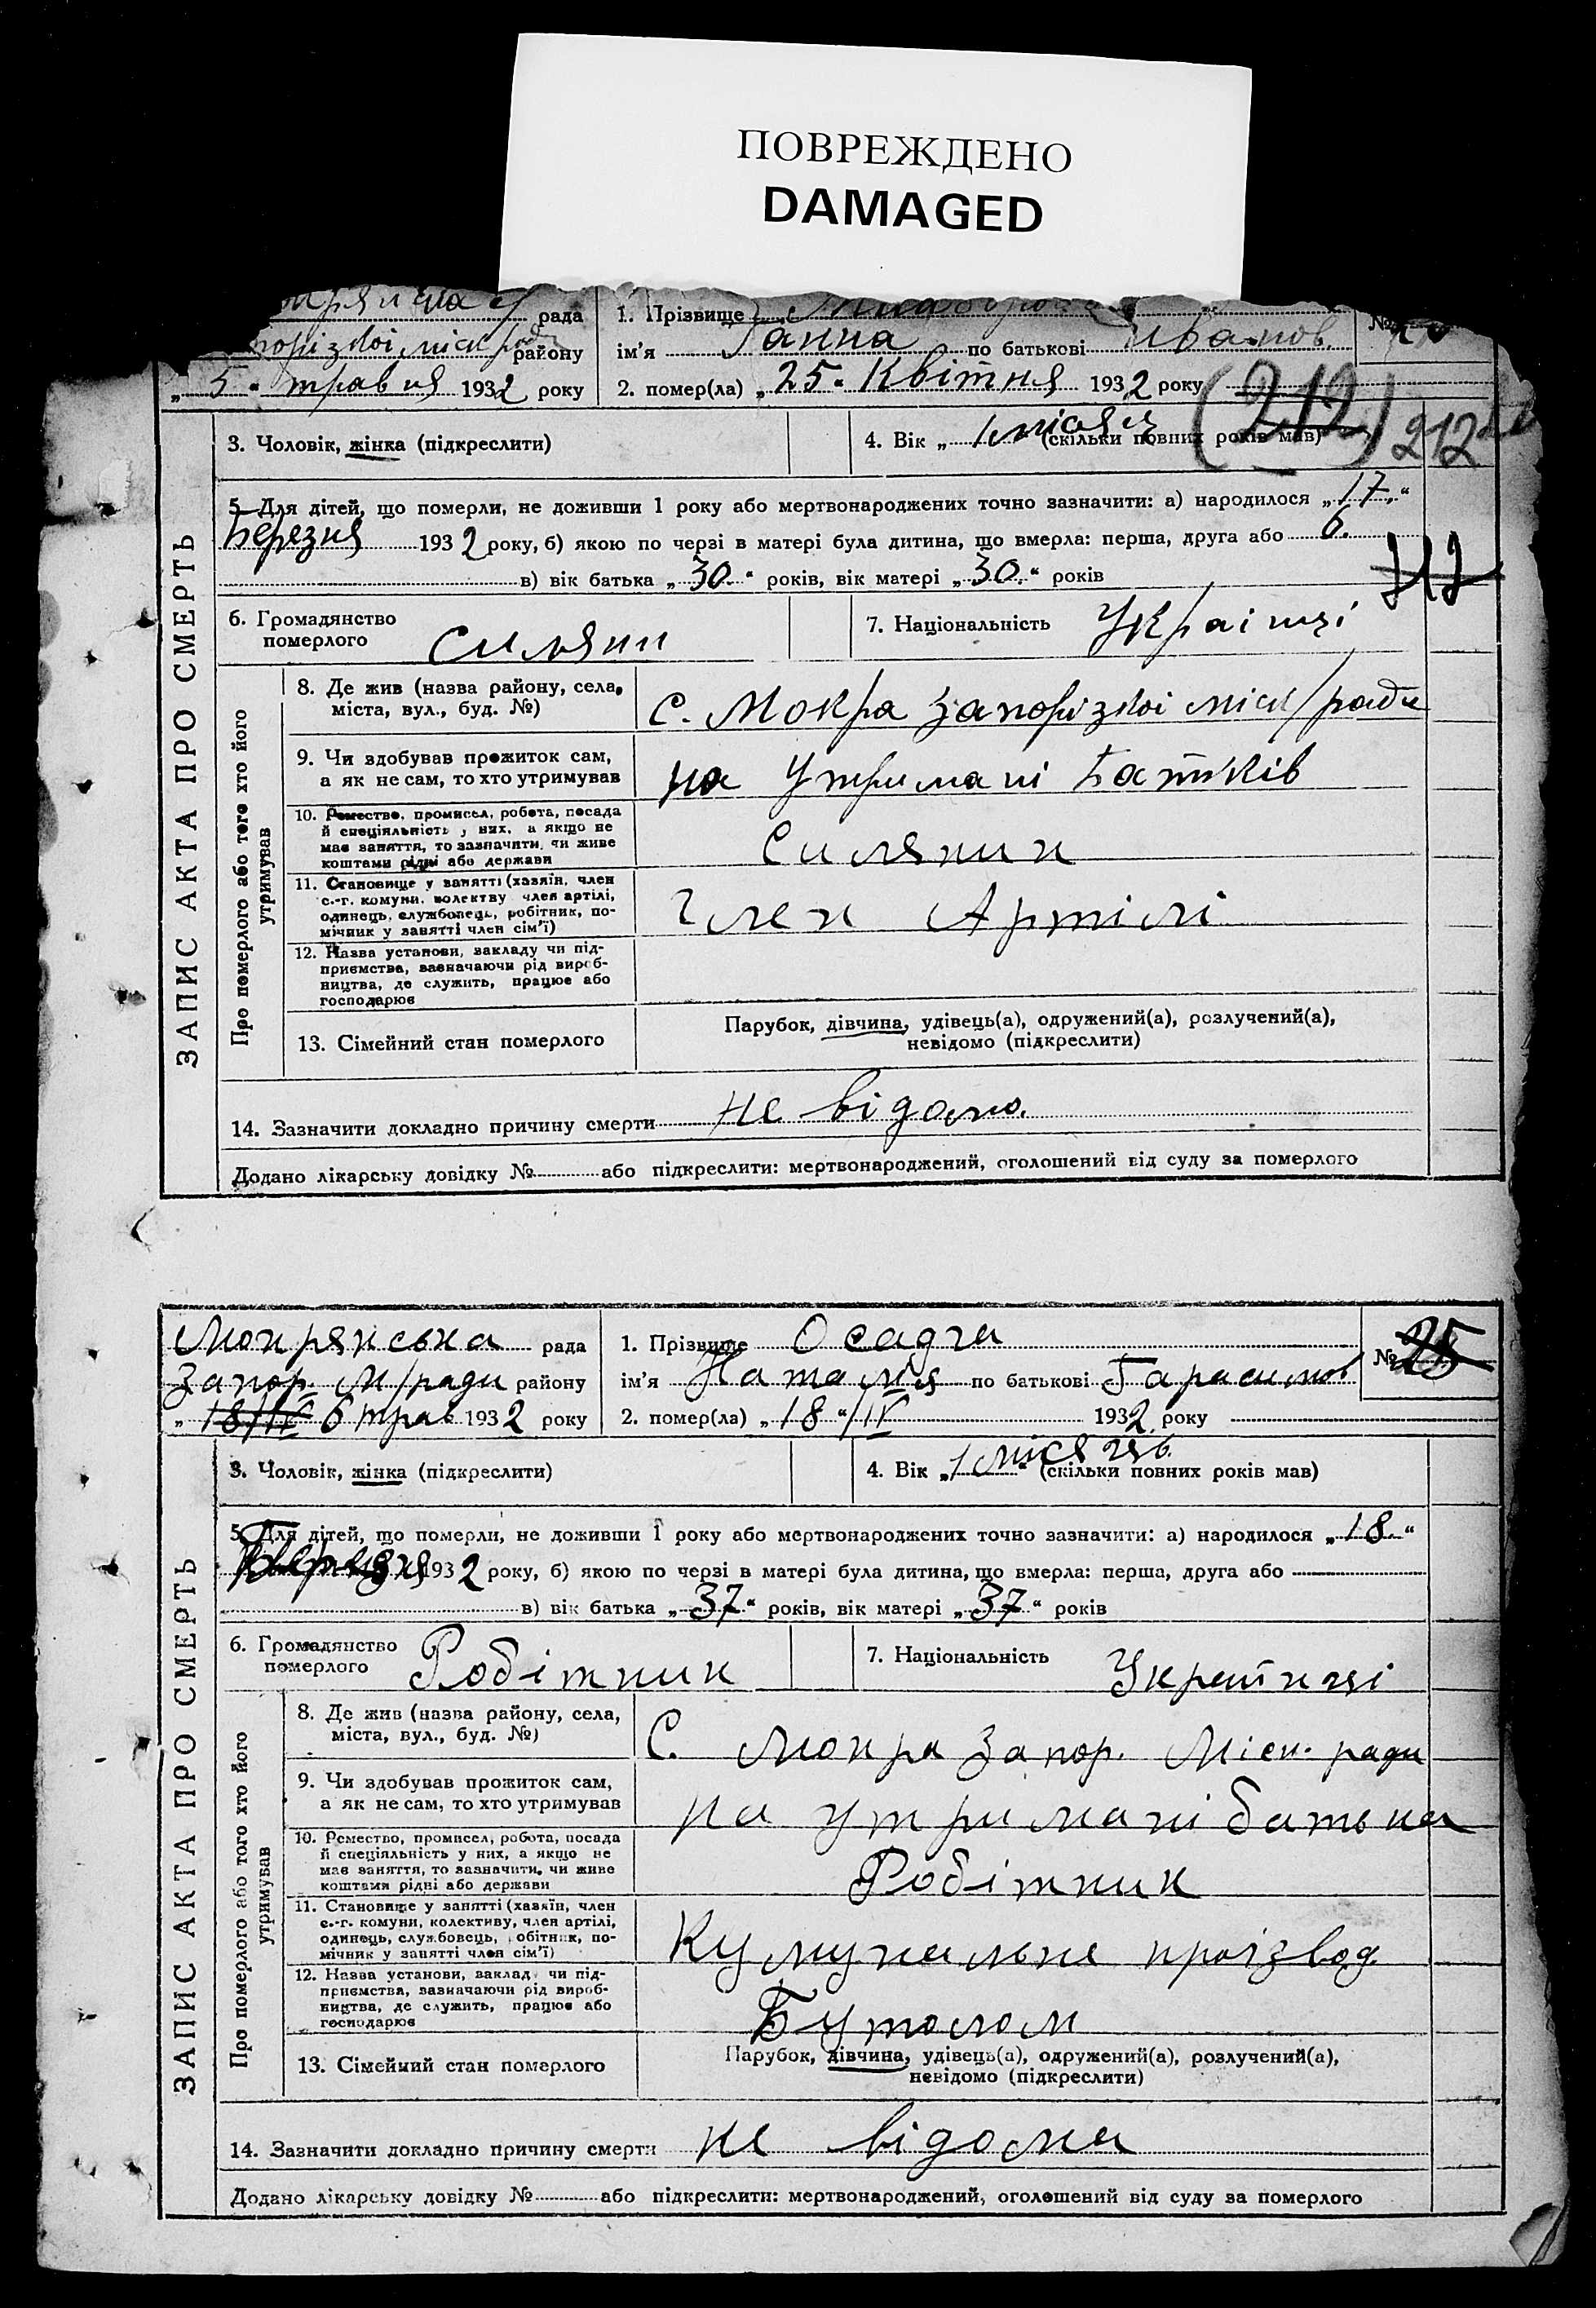 ПОВРЕЖДЕНО
DAMAGED
рада
1. Прізвище
№
району
ім'я Ганна по батькові Иванов.
„5“ травня 1932 року
2. помер(ла) „25“ Квітня 1932 року
(212) 212
3. Чоловік, жінка (підкреслити)
4. Вік „1 місяць (скільки повних років мав)
5. Для дітей, що померли, не доживши 1 року або мертвонароджених точно зазначити: а) народилося „17.“
Березня 1932 року, б) якою по черзі в матері була дитина, що вмерла: перша, друга або 6.
в) вік батька „30“ років, вік матері „30.“ років
6. Громадянство померлого силянин
7. Національність Украінці
ЗАПИС АКТА ПРО СМЕРТЬ
Про померлого або того хто його утримував
8. Де жив (назва району, села, міста, вул., буд. №)
с. Мокра Запорізкоі міск/ради
9. Чи здобував прожиток сам, а як не сам, то хто утримував
на утримані батьків
10. Ремество, промисел, робота, посада й спеціяльність у них, а якщо не має заняття, то зазначити, чи живе коштами рідні або держави
Силянин
11. Становище у занятті (хазяїн, член с.-г. комуни, колективу член артілі, одинець, службовець, робітник, помічник у занятті член сім'ї)
Член Артілі
12. Назва установи, закладу чи підприємства, зазначаючи рід виробництва, де служить, працює або господарює
13. Сімейний стан померлого
Парубок, дівчина, удівець(а), одружений(а), розлучений(а),
невідомо (підкреслити)
14. Зазначити докладно причину смерти не відомо.
Додано лікарську довідку № або підкреслити: мертвонароджений, оголошений від суду за померлого
Мокрянська рада
1. Прізвище Осадча
№ 25
Запор. М/ради району
ім'я Наталія по батькові Гарасимов
„18/IV 6 трав 1932 року
2. помер(ла) „18“/IV 1932 року
3. Чоловік, жінка (підкреслити)
4. Вік „1 місяць.“ (скільки повних років мав)
5. Для дітей, що померли, не доживши 1 року або мертвонароджених точно зазначити: а) народилося „18.“
Березня 1932 року, б) якою по черзі в матері була дитина, що вмерла: перша, друга або
в) вік батька „37“ років, вік матері „37“ років
6. Громадянство померлого Робітник
7. Національність Українці
ЗАПИС АКТА ПРО СМЕРТЬ
Про померлого або того хто його утримував
8. Де жив (назва району, села, міста, вул., буд. №)
С. Мокра Запор. Міск. ради
9. Чи здобував прожиток сам, а як не сам, то хто утримував
на утримані батька
10. Ремество, промисел, робота, посада й спеціяльність у них, а якщо не має заняття, то зазначити, чи живе коштами рідні або держави
Робітник
11. Становище у занятті (хазяїн, член с.-г. комуни, колективу, член артілі, одинець, службовець, робітник, помічник у занятті член сім'ї)
Кумунальне проізвод.
12. Назва установи, закладу чи підприємства, зазначаючи рід виробництва, де служить, працює або господарює
Бутолом
13. Сімейний стан померлого
Парубок, дівчина, удівець(а), одружений(а), розлучений(а),
невідомо (підкреслити)
14. Зазначити докладно причину смерти не відома
Додано лікарську довідку № або підкреслити: мертвонароджений, оголошений від суду за померлого